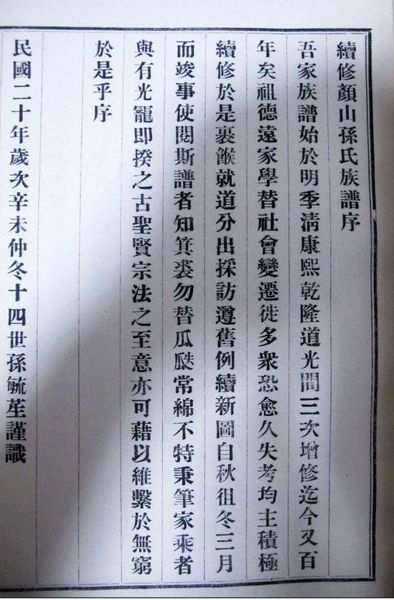 續修顏山孫氏族譜序
吾家族譜始於明季淸康熙乾隆道光間三次增修迄今又百
年矣祖德遠家學替社會變遷徙多衆恐愈久失考均主積極
續修於是裹餱就道分出採訪遵舊例續新圖自秋徂冬三月
而竣事使閱斯譜者知箕裘勿替瓜瓞常綿不特秉筆家乘者
與有光寵即揆之古聖賢宗法之至意亦可藉以維繫於無窮
於是乎序
民國二十年歲次辛未仲冬十四世孫毓苼謹識